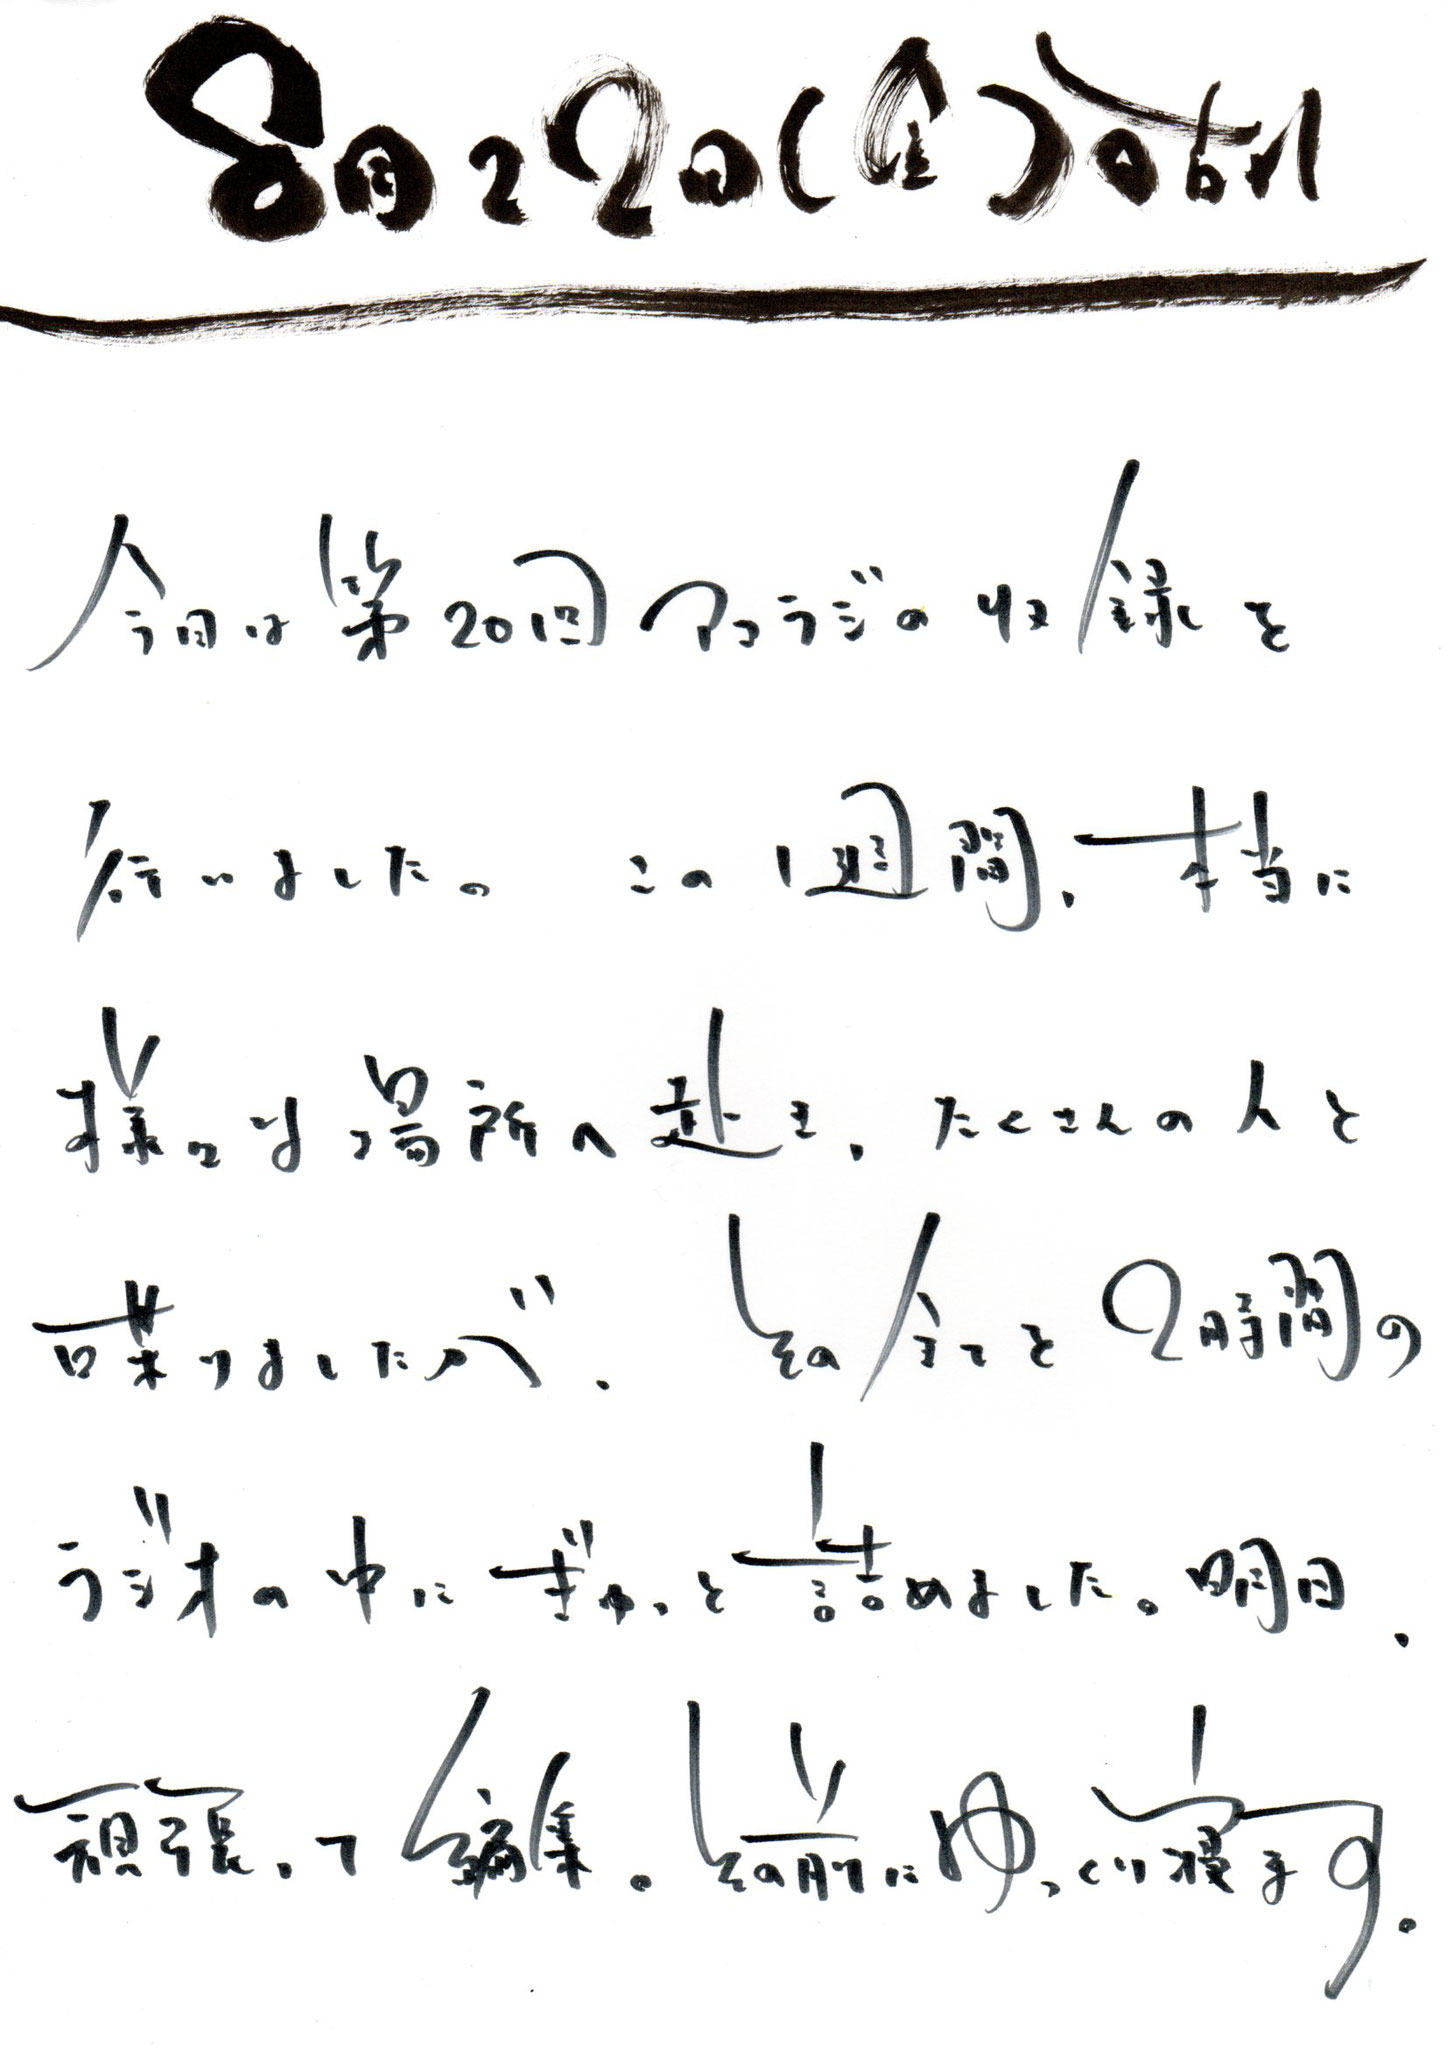 8月22日(金)
今日は第20回アコラジの収録を
行いました。この1週間、本当に
様々な場所へ赴き、たくさんの人と
喋りましたが、その全てを2時間の
ラジオの中にぎゅっと詰めました。明日、
頑張って編集。その前にゆっくり寝ます。